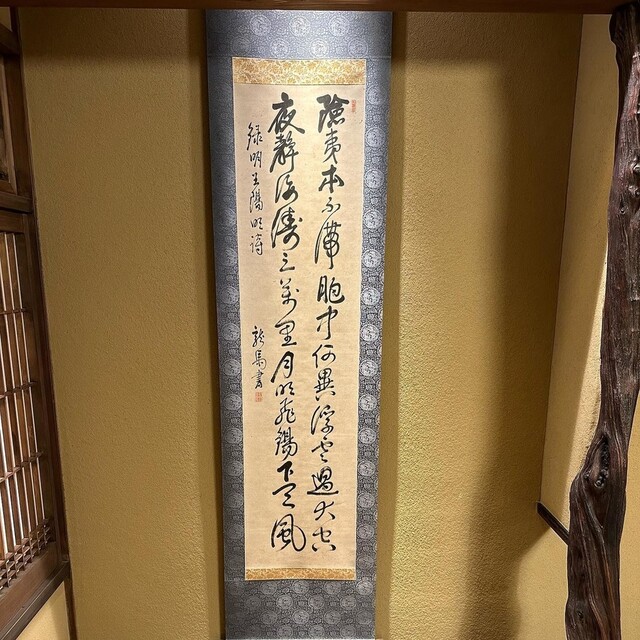 險夷本不滯胸中何異浮雲過太空
夜静海濤三萬里月明飛錫下天風
録明王陽明詩
龍馬書